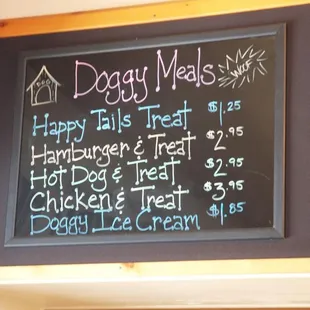 DOG
Doggy Meals
WOOF
Happy Tails Treat $1.25
Hamburger & Treat $2.95
Hot Dog & Treat $2.95
Chicken & Treat $3.95
Doggy Ice Cream $1.85